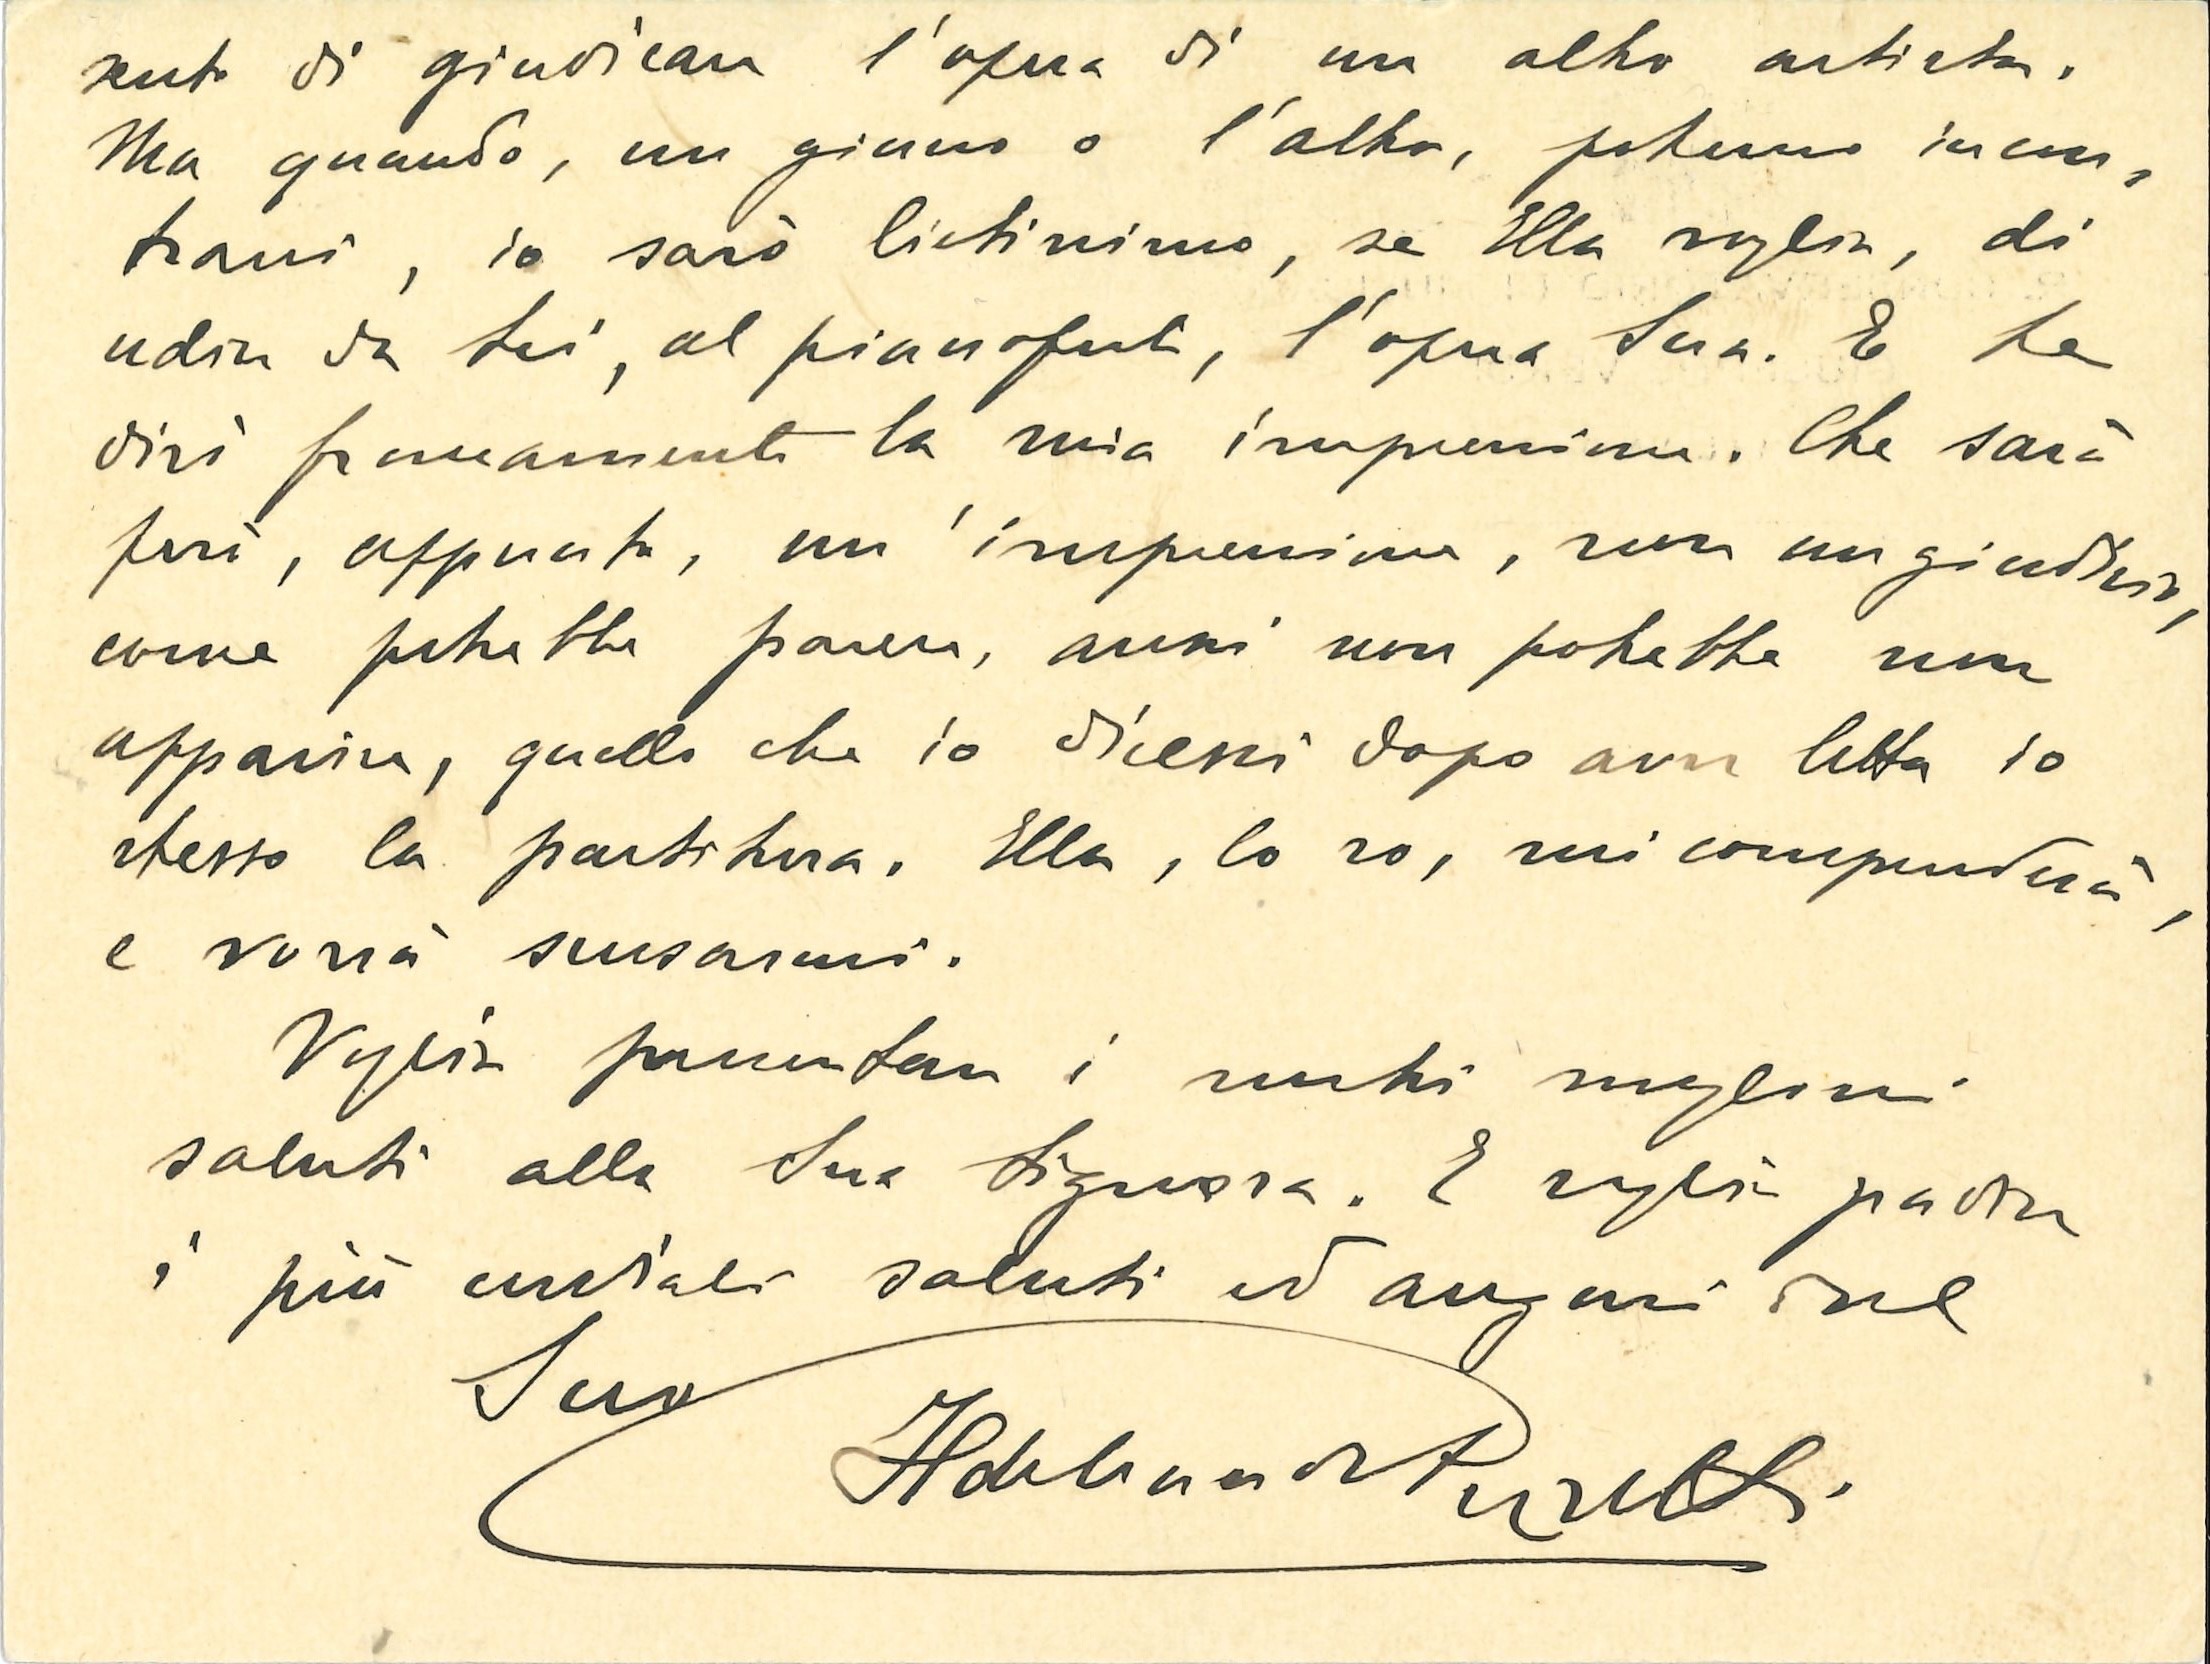 sento di giudicare l'opera di un altro artista.
Ma quando, un giorno o l'altro, potremo incon-
trarci, io sarò lietissimo, se Ella voglia, di
udire da Lei, al pianoforte, l'opera Sua. E Le
dirò francamente la mia impressione. Che sarà
però, appunto, un'impressione, non un giudizio,
come potrebbe parere, anzi non potrebbe non
apparire, quello che io dicessi dopo aver letta io
stesso la partitura. Ella, lo so, mi comprenderà,
e vorrà scusarmi.
Voglia presentare i nostri migliori
saluti alla Sua Signora. E voglia gradire
i più cordiali saluti ed auguri del
Suo
Ildebrando Pizzetti.